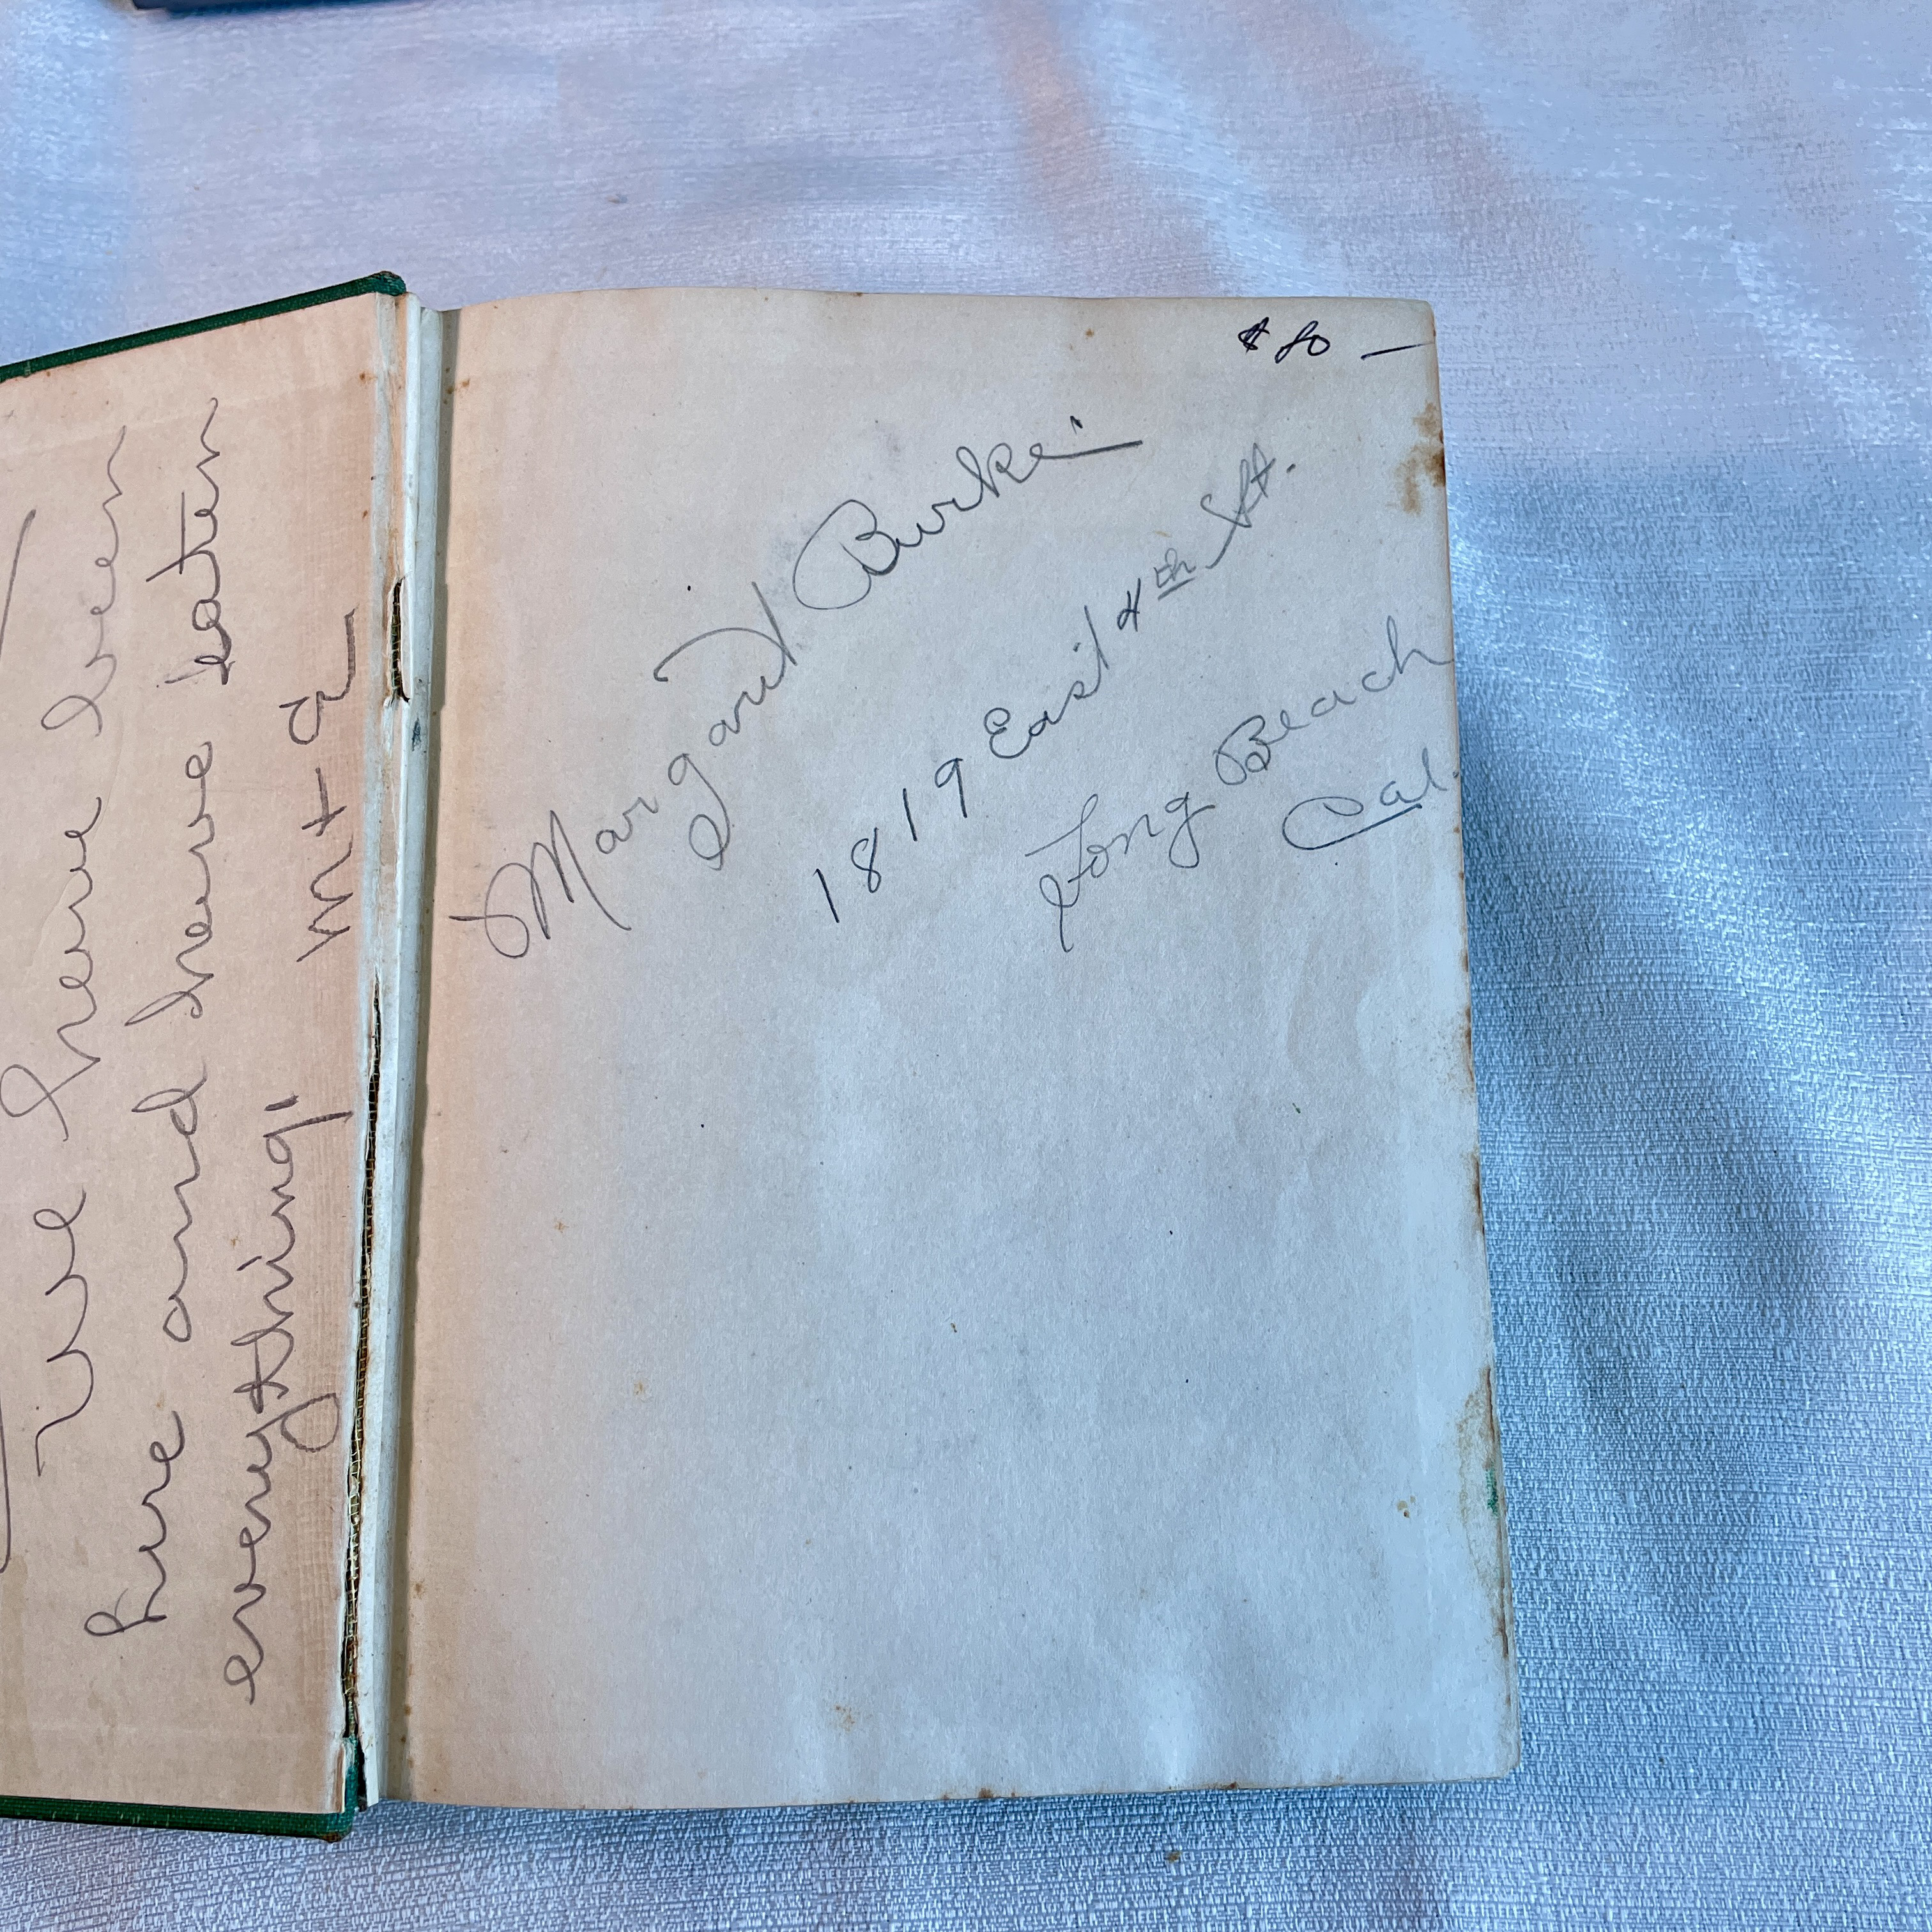 We have been
here and have eaten
everything!
M + a
Margaret Burke
1819 East 4th St.
Long Beach
Cal.